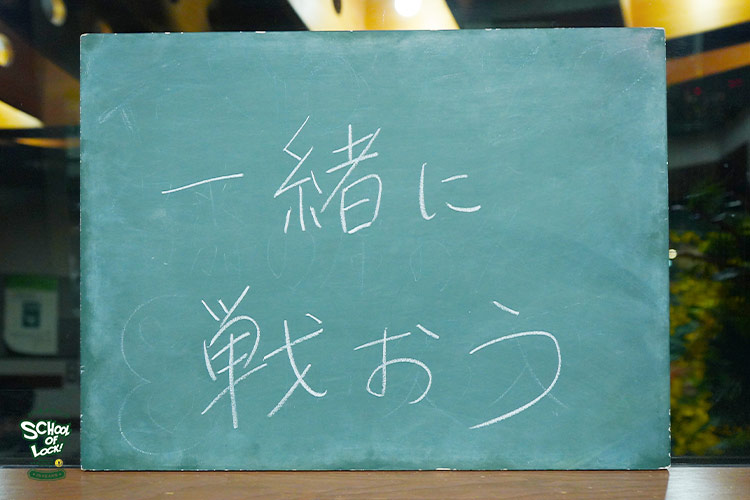 一緒に
戦おう
SCHOOL
OF
LOCK!